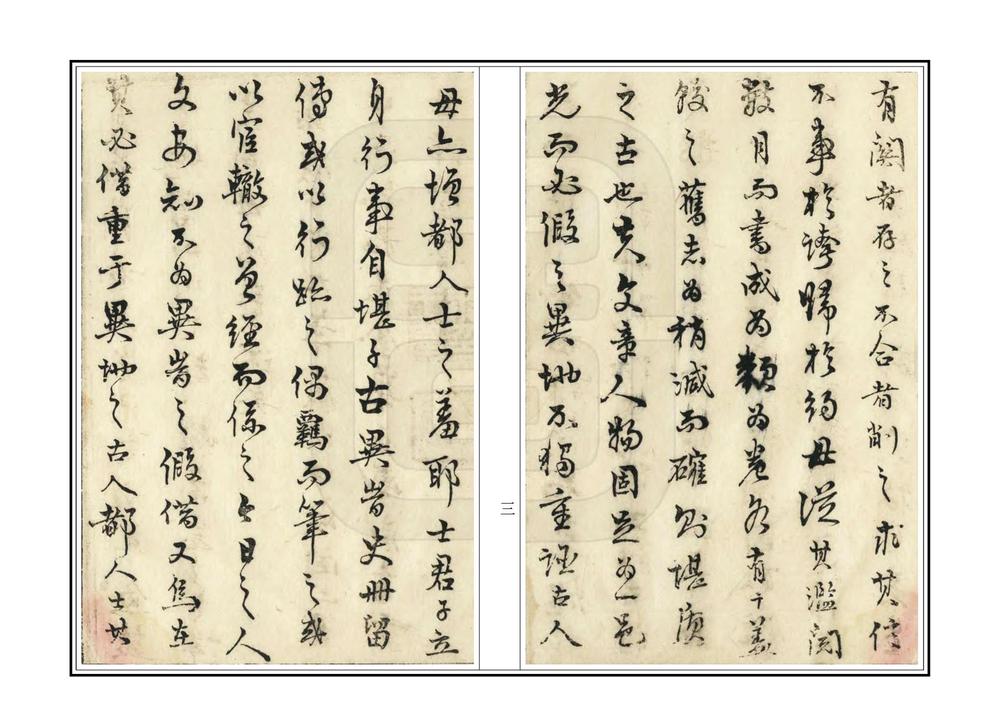 有関者存之不合者削之求其信
不事於誇歸於約毋從其濫閲
數月而書成為類為卷各有千
毀之舊志為稍減而確則堪
之古也夫文章人物固足為一邑
光而必假之異地不獨重誣古人
三
毋亦增都人士之羞耶士君子立
身行事自堪千古異者史冊留
傳或以行跡之偶羈而筆之或
以宦轍之曾經而係之今日之人
文安知不為異者之假借又焉在
其必借重于異地之古人都人士其